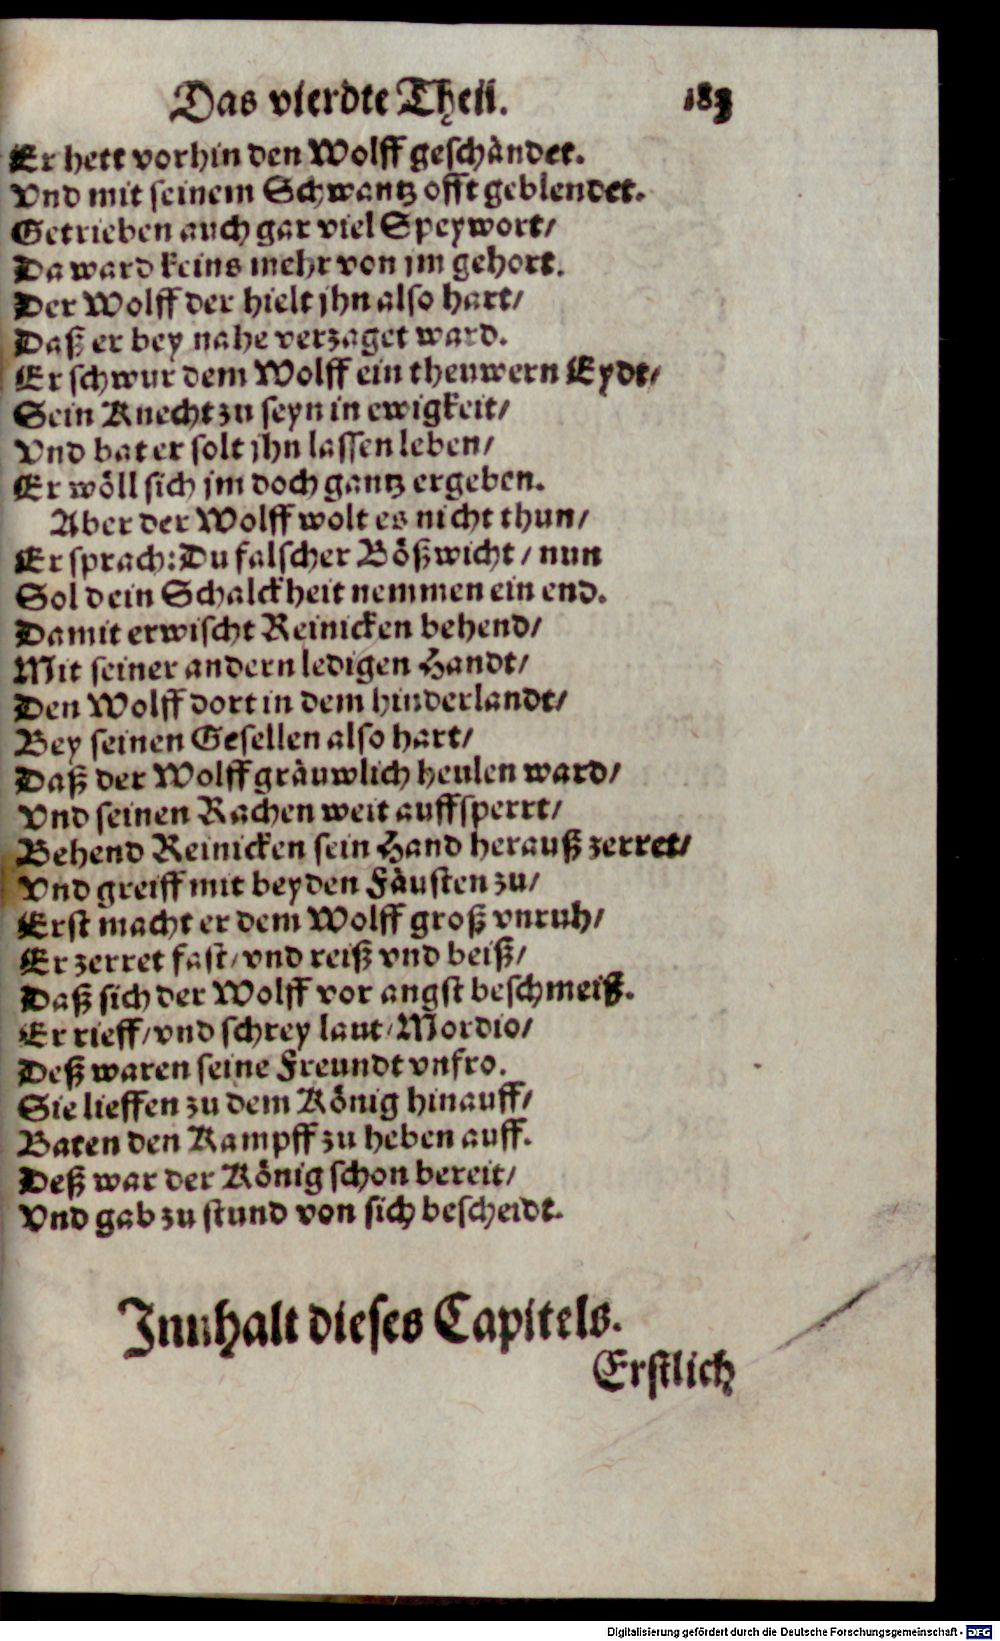 Das vierdte Theil. 183
Er hett vorhin den Wolff geschändet.
Vnd mit seinem Schwantz offt geblendet.
Getrieben auch gar viel Speywort/
Da ward keins mehr von jm gehort.
Der Wolff der hielt jhn also hart/
Daß er bey nahe verzaget ward.
Er schwur dem Wolff ein theuwern Eydt/
Sein Knecht zu seyn in ewigkeit/
Vnd bat er solt jhn lassen leben/
Er wöll sich jm doch gantz ergeben.
Aber der Wolff wolt es nicht thun/
Er sprach: Du falscher Bößwicht / nun
Sol dein Schalckheit nemmen ein end.
Damit erwischt Reinicken behend/
Mit seiner andern ledigen Handt/
Den Wolff dort in dem hinderlandt/
Bey seinen Gesellen also hart/
Daß der Wolff gräuwlich heulen ward/
Vnd seinen Rachen weit auffsperrt/
Behend Reinicken sein Hand herauß zerret/
Vnd greiff mit beyden Fäusten zu/
Erst macht er dem Wolff groß vnruh/
Er zerret fast/ vnd reiß vnd beiß/
Daß sich der Wolff vor angst beschmeiß.
Er rieff/ vnd schrey laut/ Mordio/
Deß waren seine Freundt vnfro.
Sie lieffen zu dem König hinauff/
Baten den Kampff zu heben auff.
Deß war der König schon bereit/
Vnd gab zu stund von sich bescheidt.
Innhalt dieses Capitels.
Erstlich
Digitalisierung gefördert durch die Deutsche Forschungsgemeinschaft - DFG